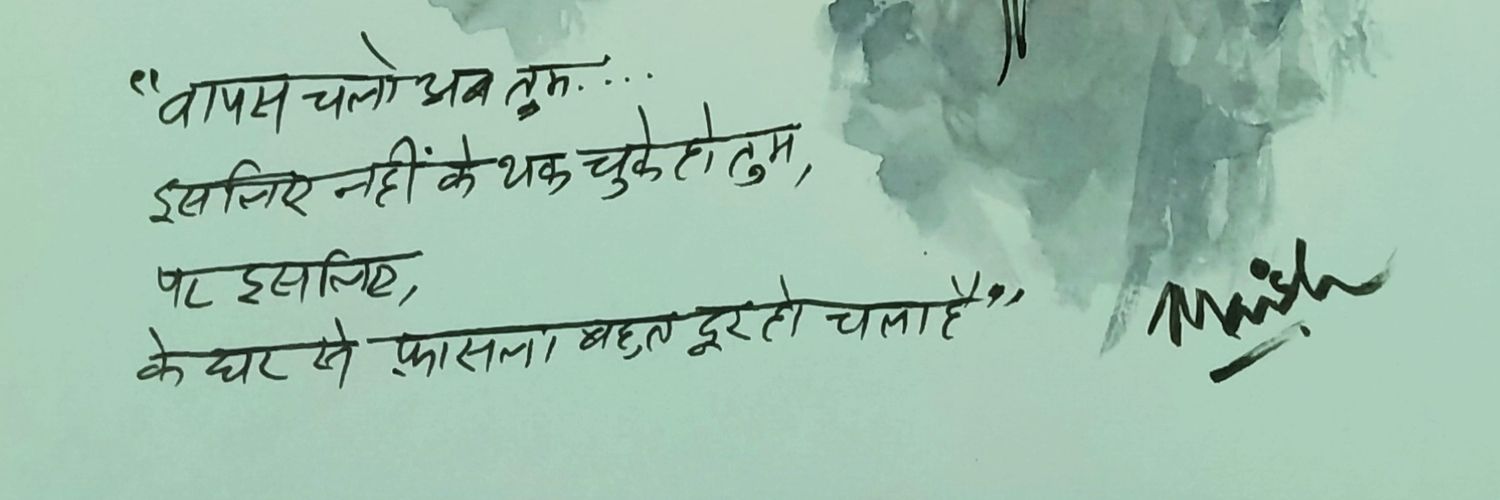 “वापस चलो अब तुम....
इसलिए नहीं के थक चुके हो तुम,
पर इसलिए,
के घर से फ़ासला बहुत दूर हो चला है”